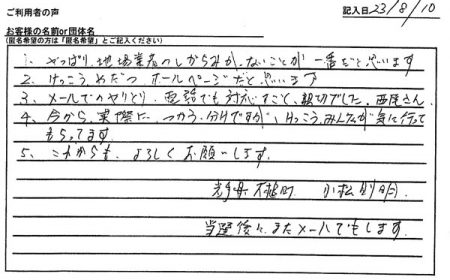 ご利用者の声
記入日 23/8/10
お客様の名前or団体名
(匿名希望の方は「匿名希望」とご記入ください)
1. やっぱり、地場業者のしがらみがないことが一番だと思います
2. けっこう、めだつ ホームページだと思います
3. メールでのやりとり、電話でも対応すごく、親切でした。西尾さん
4. 今から、実際に、つかう分けですが、けっこう、みんなが気に行って
もらってます。
5. これからも、よろしくお願いします。
小松
当選後に、またメールでもします。